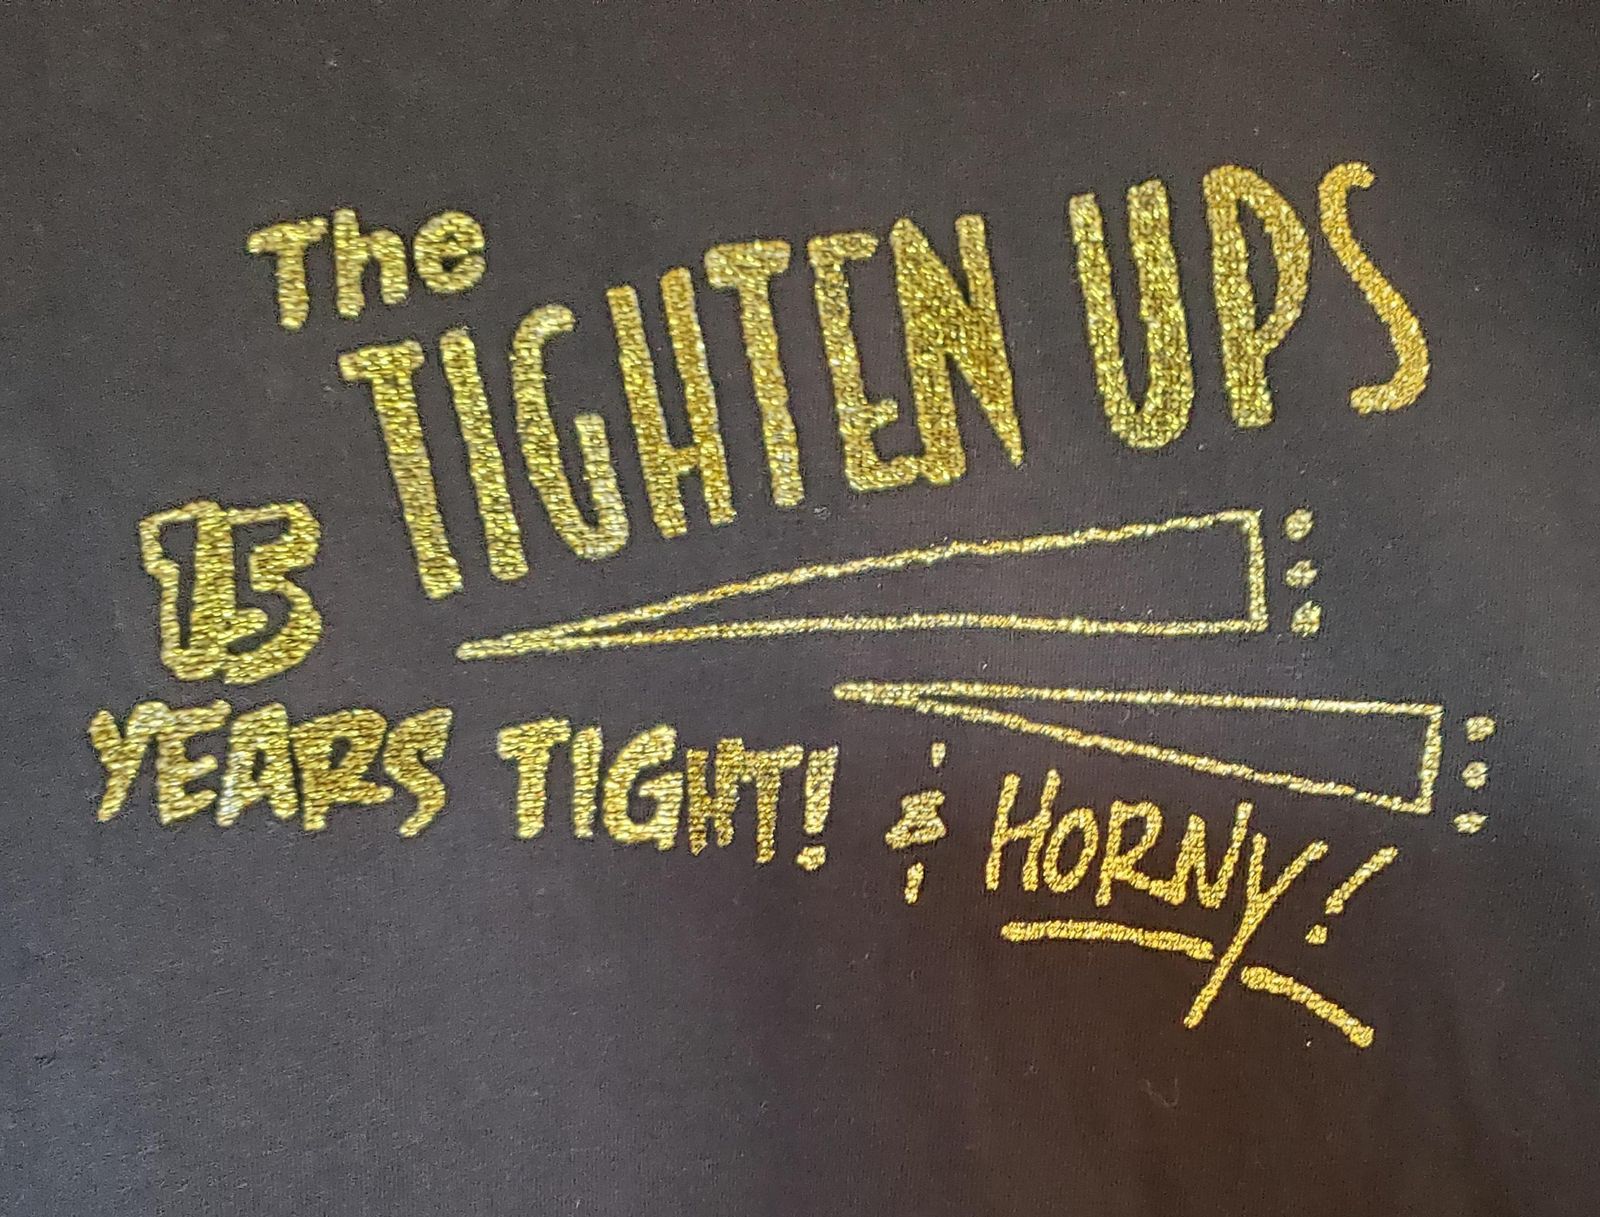 The
TIGHTEN UPS
15
YEARS TIGHT!
& HORNY!